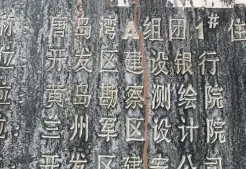 称 唐岛湾A组团1#住
位 开发区建设银行
位 黄岛勘察测绘院
位 兰州军区设计院
开发区建安公司